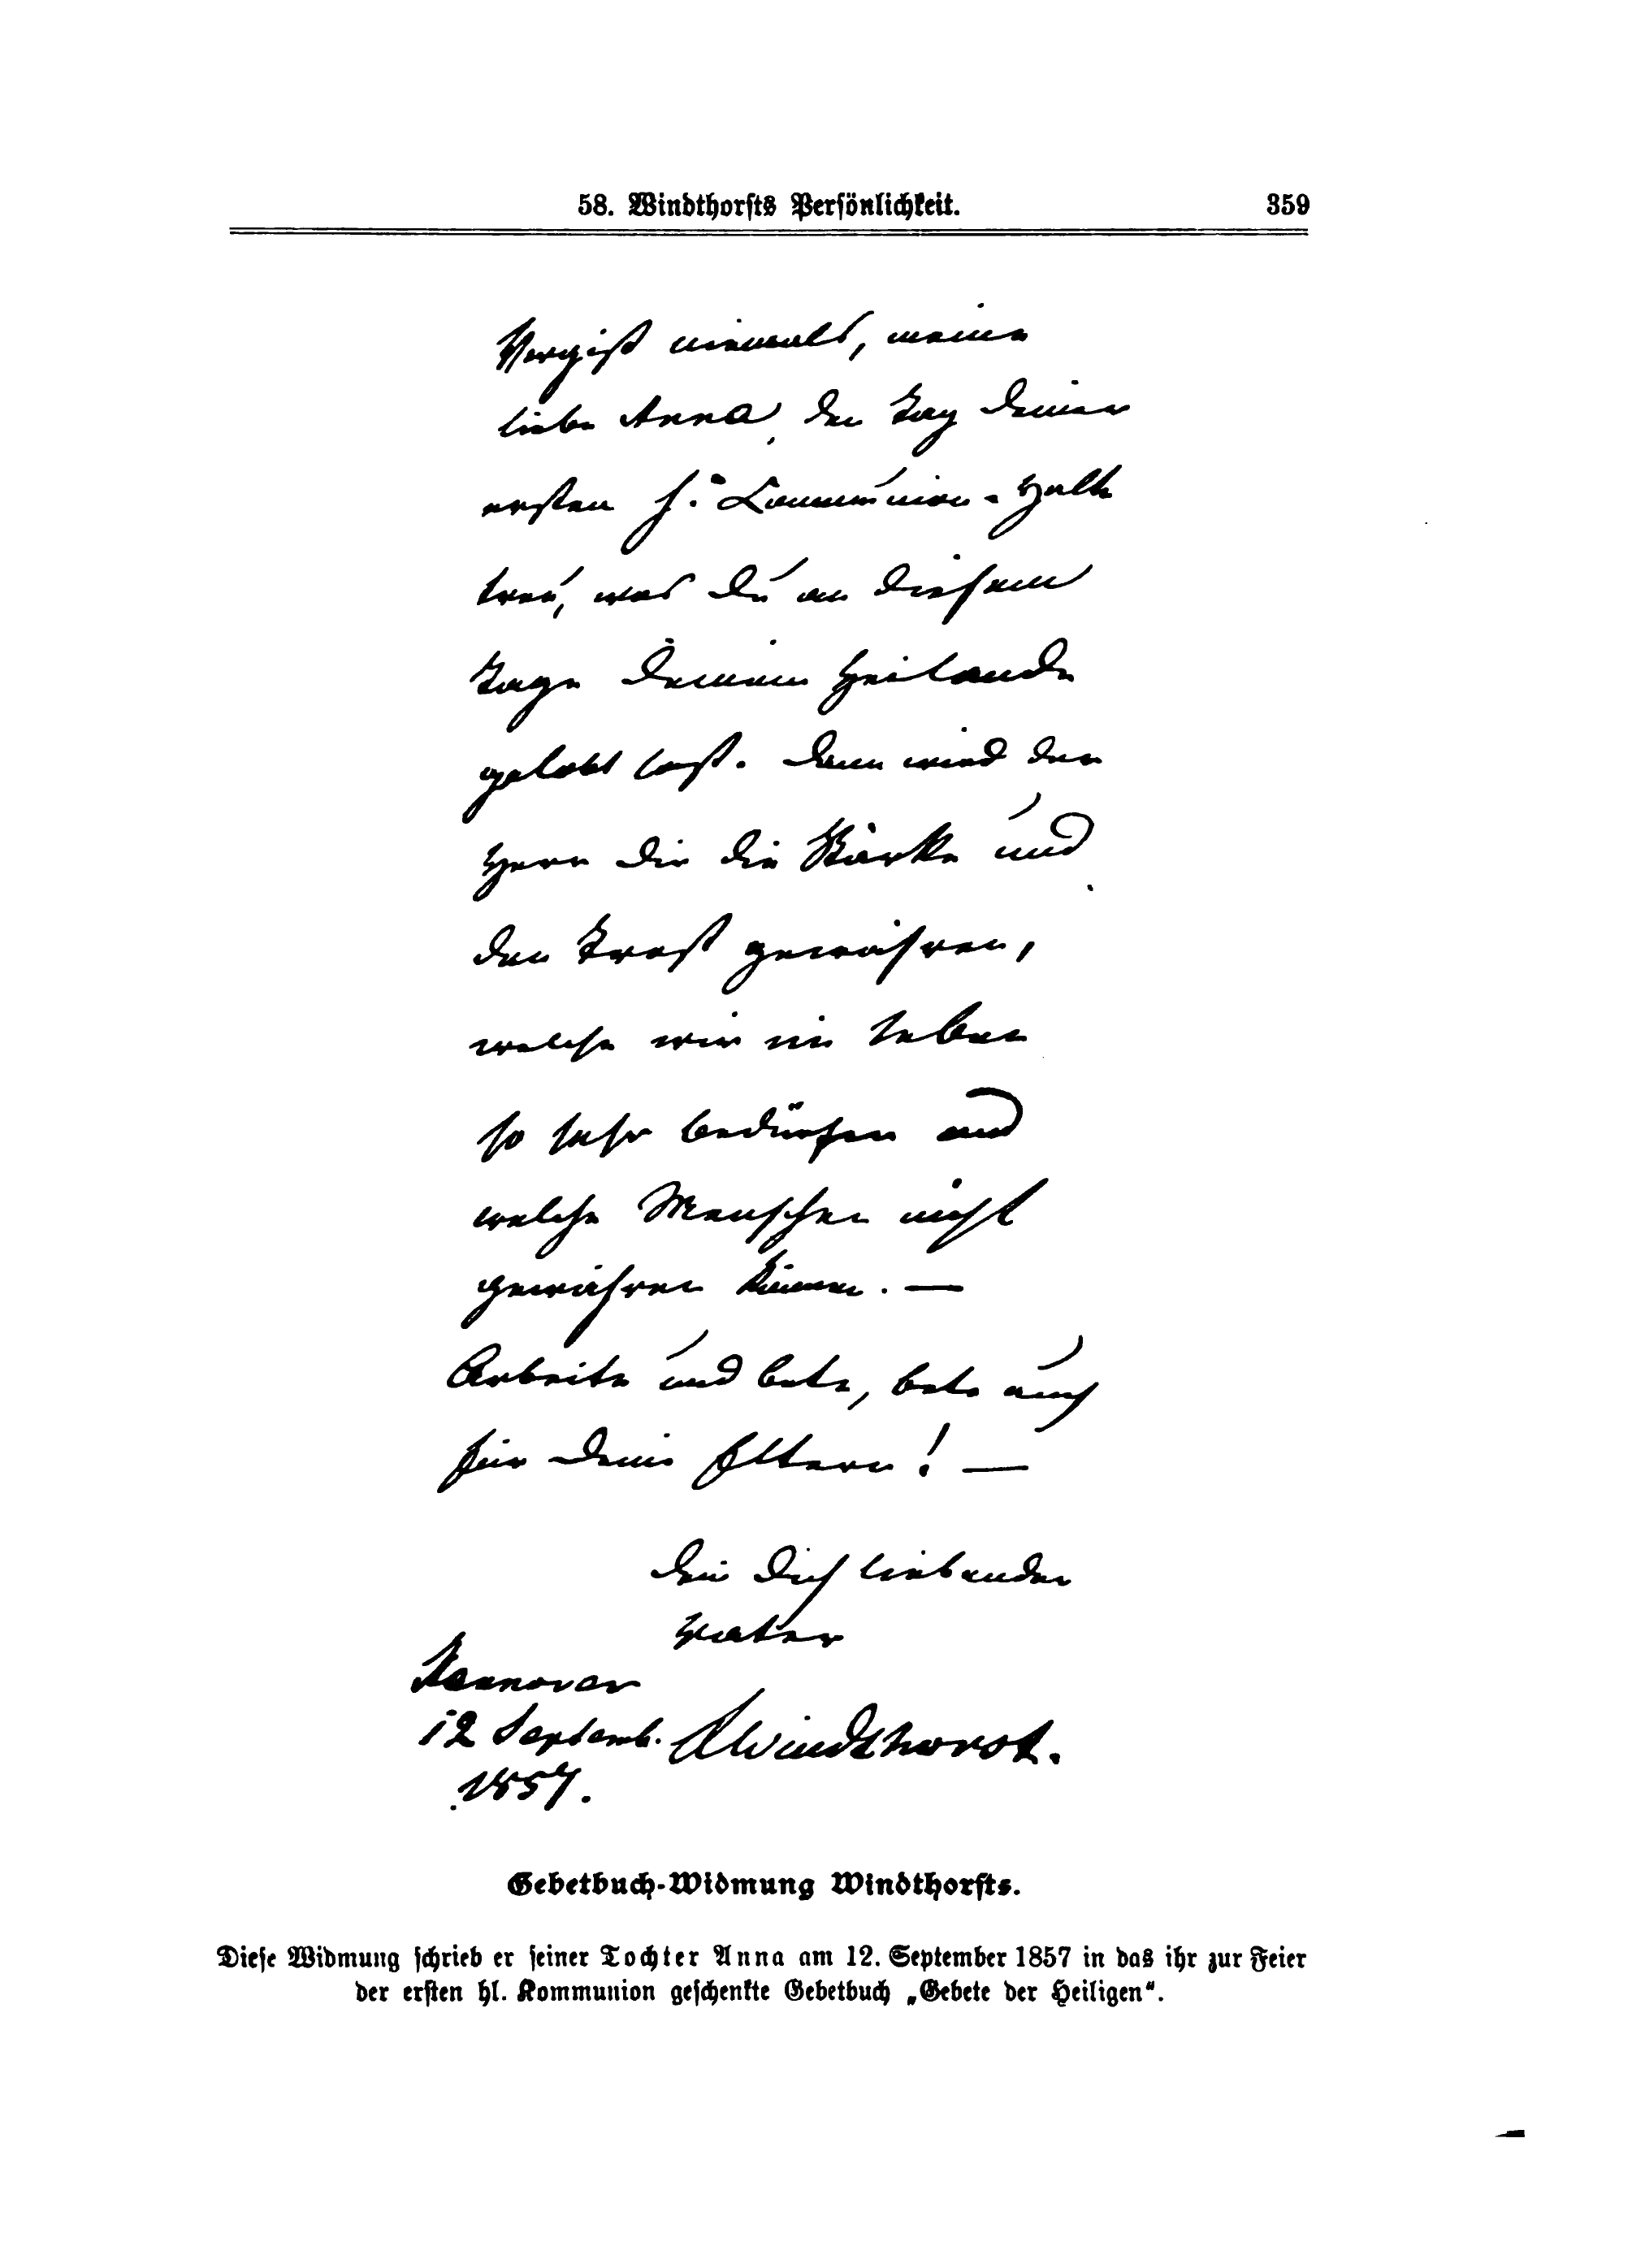 58. Windthorſts Perſönlichkeit. 359
Vergiß niemals, meine
liebe Anna, den Tag Deiner
ersten h. Communion. Halte
treu, was Du an diesem
Tage Deinem Heilande
gelobt hast. Dann wird der
Herr Dir die Stärke und
den Trost gewähren,
welche wir im Leben
so sehr bedürfen und
welche Menschen nicht
gewähren können. —
Arbeite und bete, bete auch
für Deine Eltern! —
Dein Dich liebender
Vater
Hannover
12 Septemb. LWindthorst.
1857.
Gebetbuch-Widmung Windthorſts.
Dieſe Widmung ſchrieb er ſeiner Tochter Anna am 12. September 1857 in das ihr zur Feier
der erſten hl. Kommunion geſchenkte Gebetbuch „Gebete der Heiligen“.